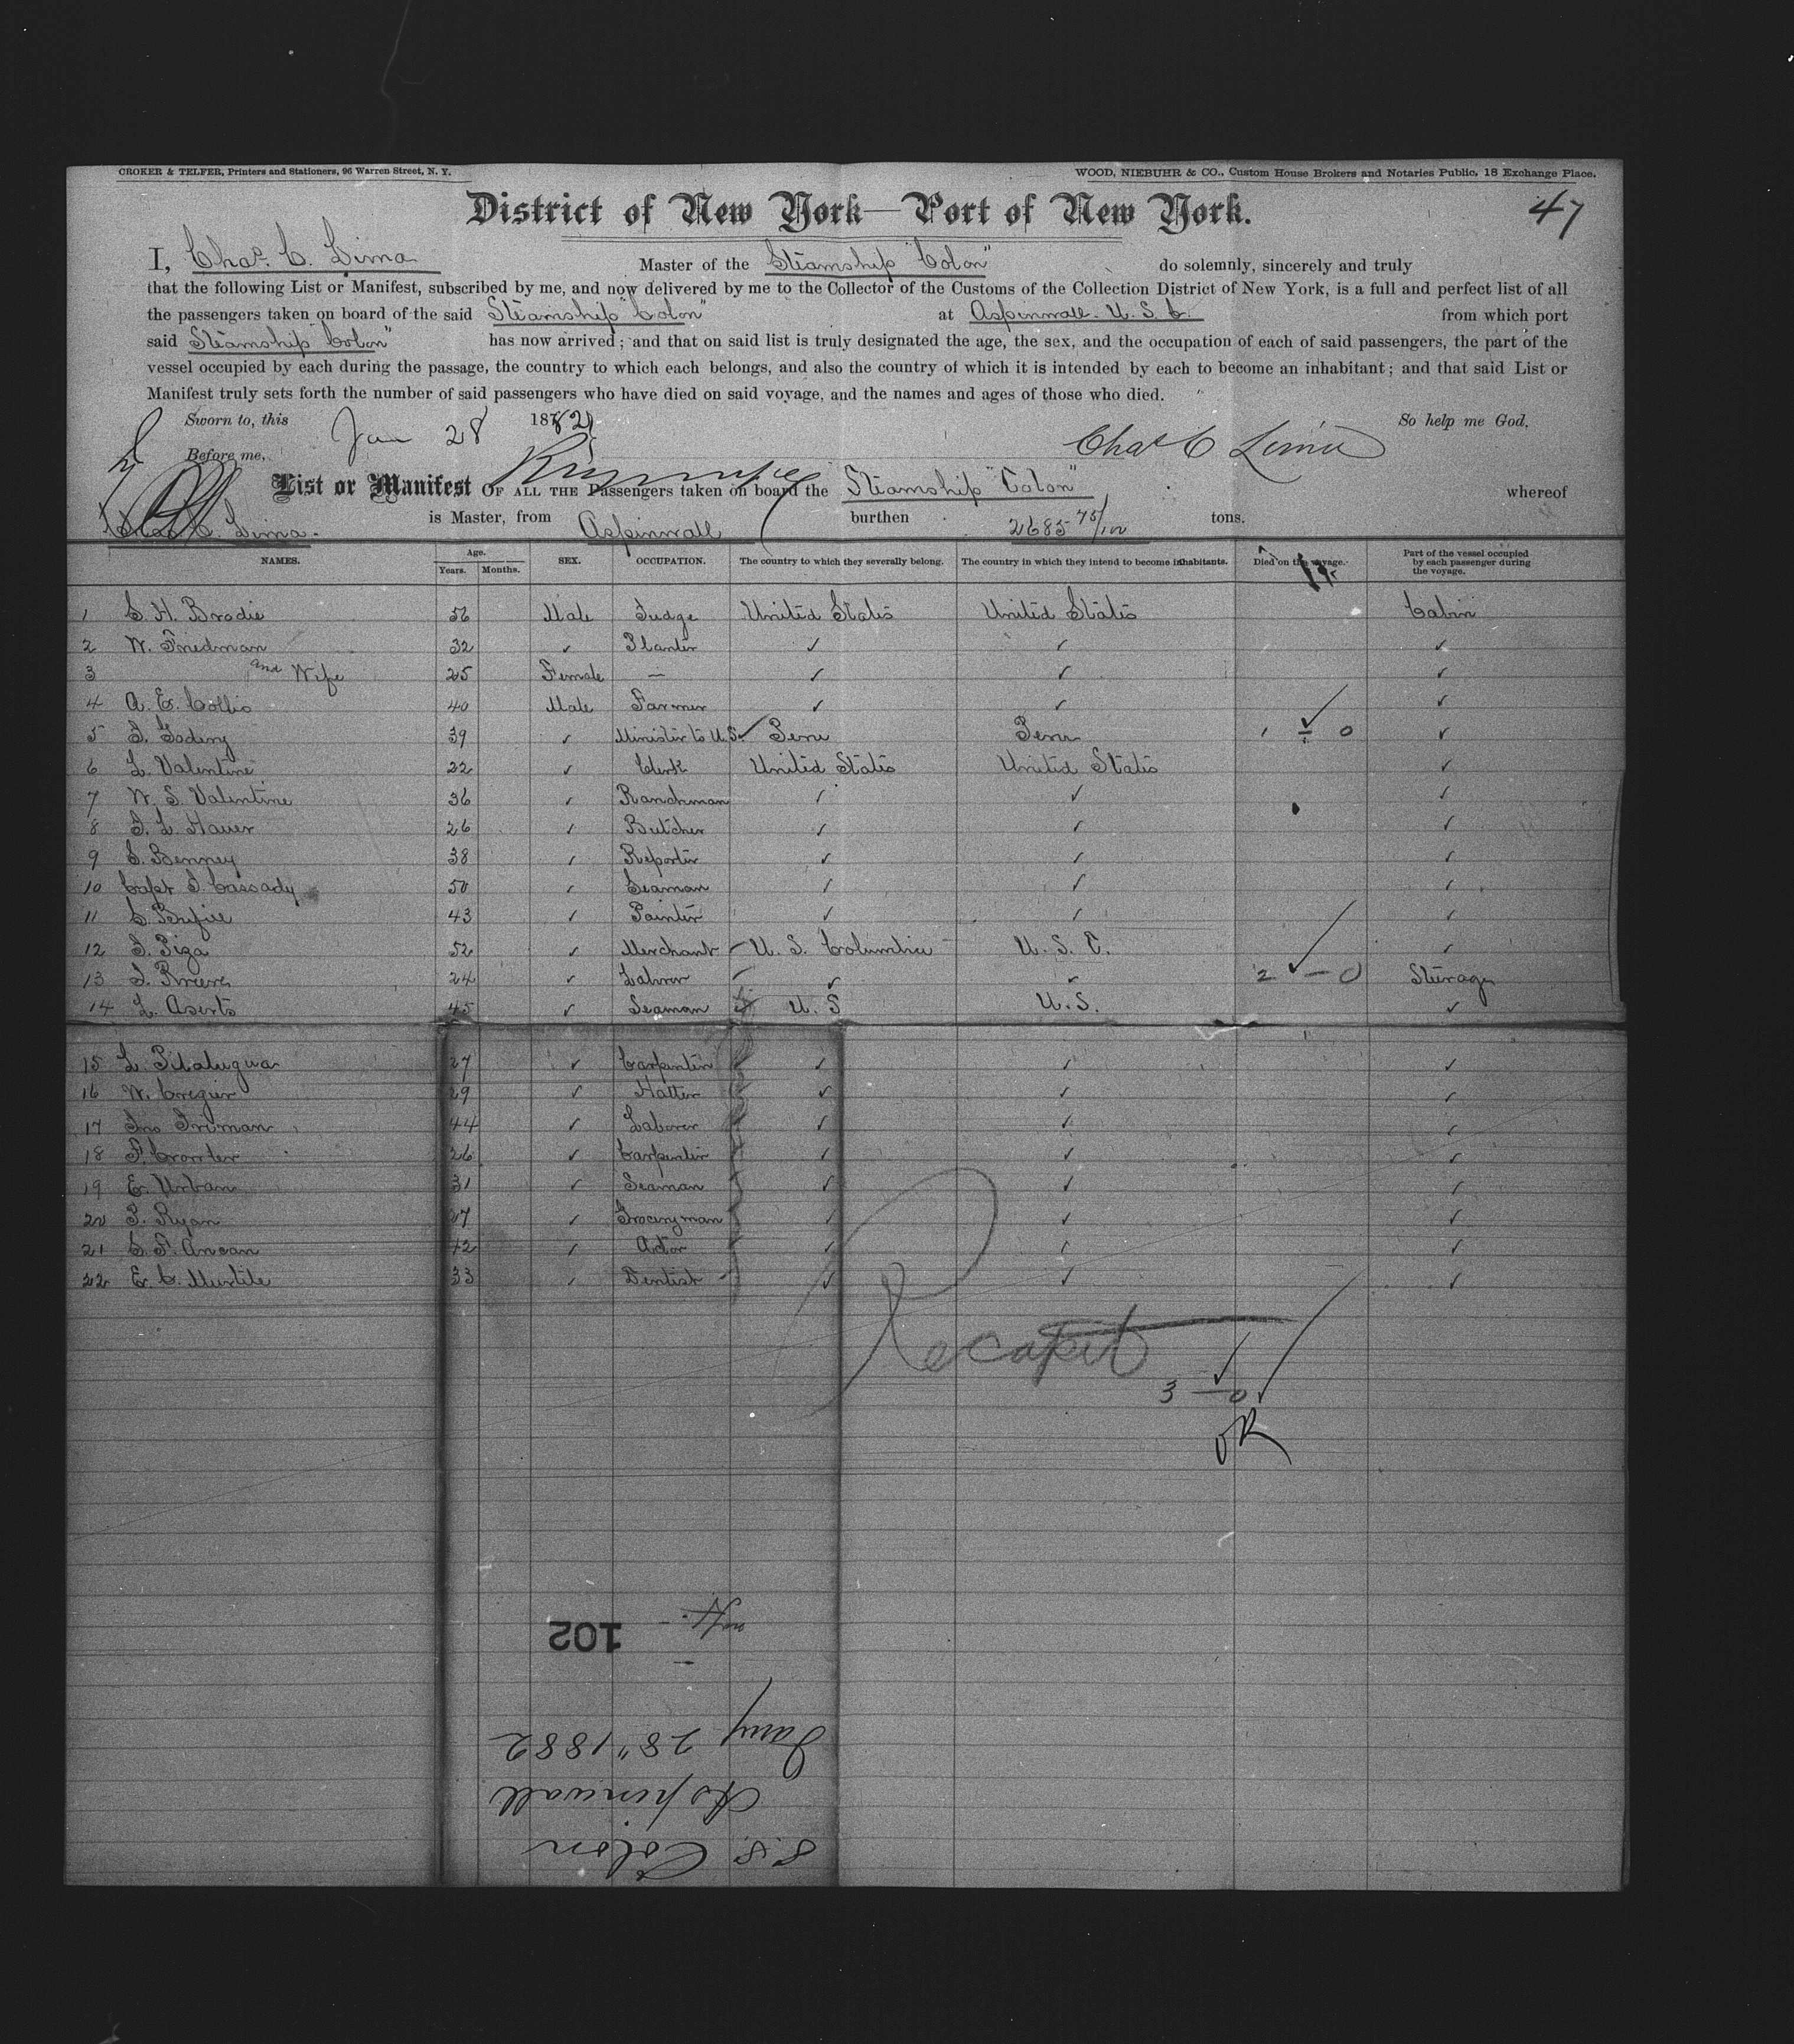 CROKER & TELFER, Printers and Stationers, 96 Warren Street, N. Y.
WOOD, NIEBUHR & CO., Custom House Brokers and Notaries Public, 18 Exchange Place.
District of New York—Port of New York.
47
I, Chas. C. Lima Master of the Steamship "Colon" do solemnly, sincerely and truly
that the following List or Manifest, subscribed by me, and now delivered by me to the Collector of the Customs of the Collection District of New York, is a full and perfect list of all
the passengers taken on board of the said Steamship "Colon" at Aspinwall. U. S. C. from which port
said Steamship "Colon" has now arrived; and that on said list is truly designated the age, the sex, and the occupation of each of said passengers, the part of the
vessel occupied by each during the passage, the country to which each belongs, and also the country of which it is intended by each to become an inhabitant; and that said List or
Manifest truly sets forth the number of said passengers who have died on said voyage, and the names and ages of those who died.
Sworn to, this Jan 28 1882 So help me God,
Before me, Chas C Lima
List or Manifest OF ALL THE Passengers taken on board the Steamship "Colon" whereof
Chas. C. Lima. is Master, from Aspinwall burthen 2685 75/100 tons.
NAMES. Age. Years. Months. SEX. OCCUPATION. The country to which they severally belong. The country in which they intend to become inhabitants. Died on the voyage. Part of the vessel occupied by each passenger during the voyage.
1 C. H. Brodie 56 Male Judge United States United States Cabin
2 W. Friedman 32 ✓ Planter ✓ ✓ ✓
3 and Wife 25 Female — ✓ ✓ ✓
4 A. E. Collis 40 Male Farmer ✓ ✓ ✓
5 39 ✓ Minister to U.S. Peru Peru 1 – 0 ✓
6 L. Valentine 22 ✓ Clerk United States United States ✓
7 W. S. Valentine 36 ✓ Ranchman ✓ ✓ ✓
8 26 ✓ Butcher ✓ ✓ ✓
9 C. Benney 38 ✓ Reporter ✓ ✓ ✓
10 Capt. Cassady 50 ✓ Seaman ✓ ✓ ✓
11 43 ✓ Painter ✓ ✓ ✓
12 Piza 52 ✓ Merchant U. S. Columbia U. S. C. ✓
13 24 ✓ Labrer ✓ ✓ 2 – 0 Sterage
14 45 ✓ Seaman U. S U. S. ✓
15 L. Pitaluguar 27 ✓ Carpenter ✓ ✓ ✓
16 W. Cregier 29 ✓ Hatter ✓ ✓ ✓
17 Jno Truman 44 ✓ Laborer ✓ ✓ ✓
18 26 ✓ Carpenter ✓ ✓ ✓
19 E. Urban 31 ✓ Seaman ✓ ✓ ✓
20 Ryan 27 ✓ Grocryman ✓ ✓ ✓
21 42 ✓ Actor ✓ ✓ ✓
22 33 ✓ Dentist ✓ ✓ ✓
Recapit
3 – 0
OK
102
S.S. Colon
Aspinwall
Jany 28" 1882